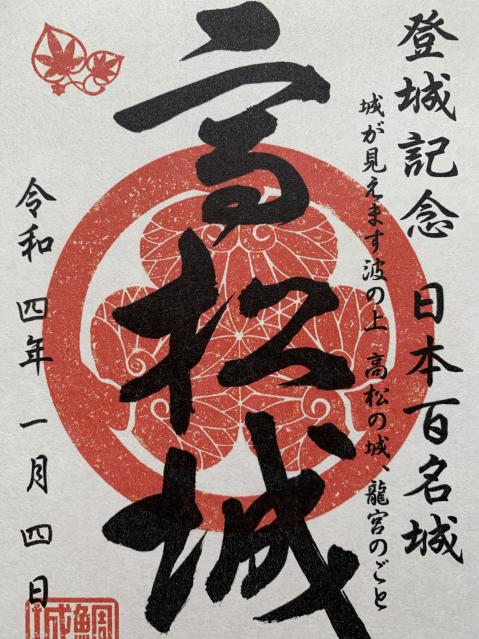 登城記念 日本百名城
城が見えます波の上 高松の城、龍宮のごと
高松城
令和四年一月四日
鯛城